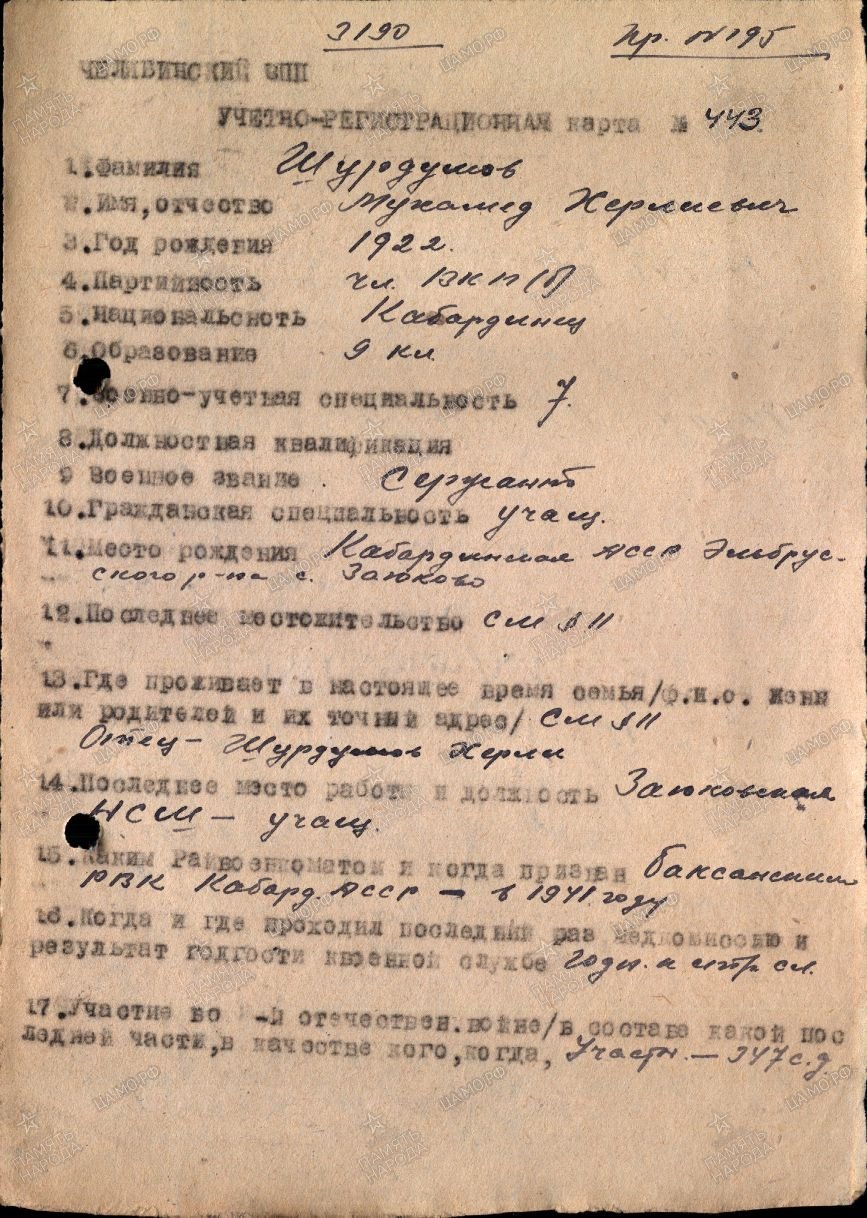 3190
Пр. №195
ЧЕЛЯБИНСКИЙ ВПП
УЧЕТНО-РЕГИСТРАЦИОННАЯ карта № 443
1.Фамилия Шурдумов
2.Имя,отчество Мухамед Херлиевич
3.Год рождения 1922.
4.Партийность чл. ВКП(б)
5.Национальсноть Кабардинец
6.Образование 9 кл
7.Военно-учетная специальность 7.
8.Должностная квалификация
9 Военное звание . Сержант
10.Гражданская специальность учащ.
11.Место рождения Кабардинская АССР Эльбрус-
ского р-на с. Заюково
12.Последнее местожительство см § 11
13.Где проживает в настоящее время семья/ф.и.о. жены
или родителей и их точный адрес/ см § 11
Отец - Шурдумов Херли
14.Последнее место работы и должность Заюковская
НСШ - учащ.
15.Каким Райвоенкоматом и когда призван Баксанским
РВК Кабард. АССР - в 1941 году
16.Когда и где проходил последний раз медкомиссию и
результат годгости квоенной службе годн. к стр сл.
17.Участие во -й отечествен.войне/в составе какой пос
ледней части,в качестве кого,когда, Участн. - 347 с.д.